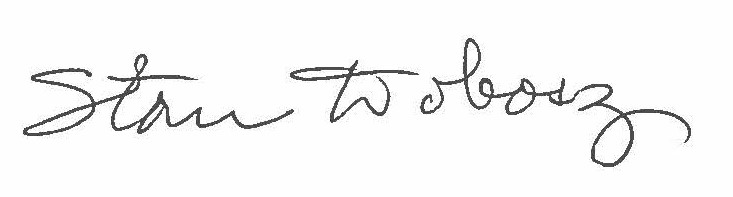 Stan Dobosz